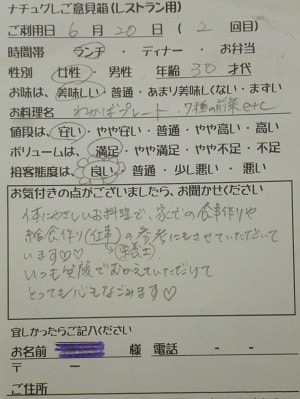 ナチュグしご意見箱(レストラン用)
ご利用日 6 月 20 日 ( 2 回目)
時間帯 ランチ ・ ディナー ・ お弁当
性別 女性 ・ 男性 年齢 30 才代
お味は、美味しい・普通・あまり美味しくない・まずい
お料理名 わかばプレート、7種の前菜etc
値段は、安い・やや安い・普通・やや高い・高い
ボリュームは、満足・やや満足・やや不足・不足
接客態度は、良い・普通・少し悪い・悪い
お気付きの点がございましたら、お聞かせください
体にやさしいお料理で、家での食事作りや
給食作り(仕事)の参考にもさせていただいて
います♡♡ (栄養士)
いつも笑顔でむかえていただけて
とっても心もなごみます♡
宜しかったらご記入ください
お名前 様 電話 - -
〒 -
ご住所